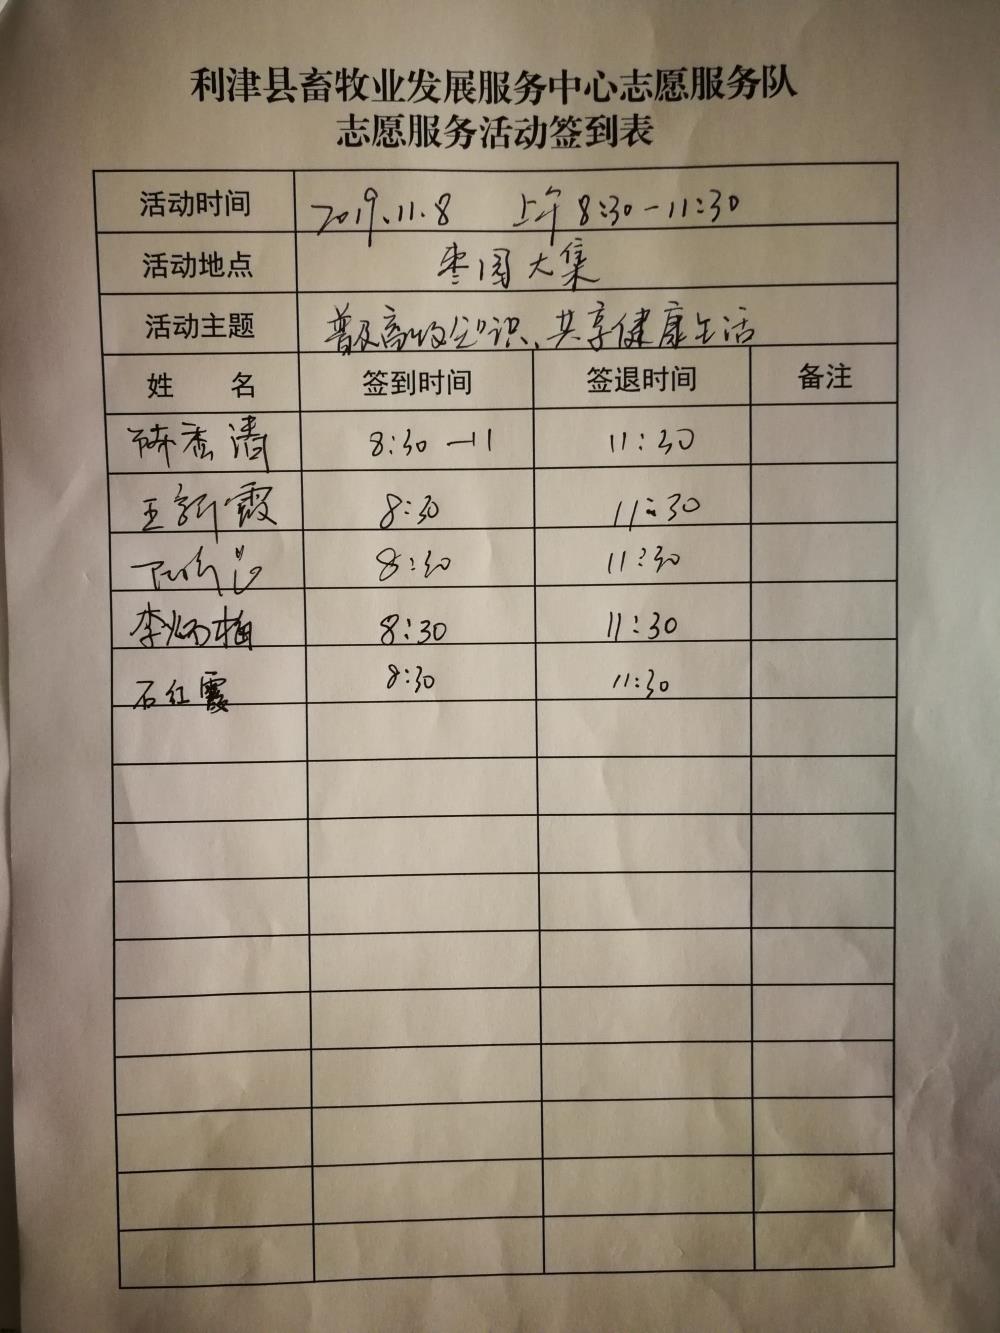 利津县畜牧业发展服务中心志愿服务队
志愿服务活动签到表
活动时间 2019.11.8 上午 8:30-11:30
活动地点 枣园大集
活动主题 普及畜牧知识、共享健康生活
姓 名 签到时间 签退时间 备注
香清 8:30 -11 11:30
王新霞 8:30 11:30
8:30 11:30
李炳梅 8:30 11:30
石红霞 8:30 11:30